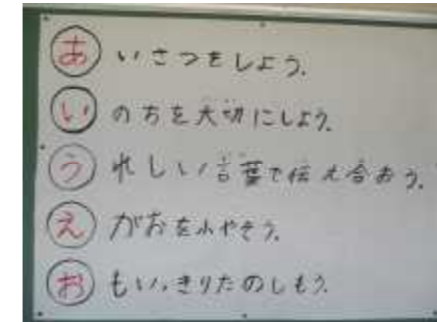 あいさつをしよう。
いのちを大切にしよう。
うれしい言葉で伝え合おう。
えがおをふやそう。
おもいっきりたのしもう。